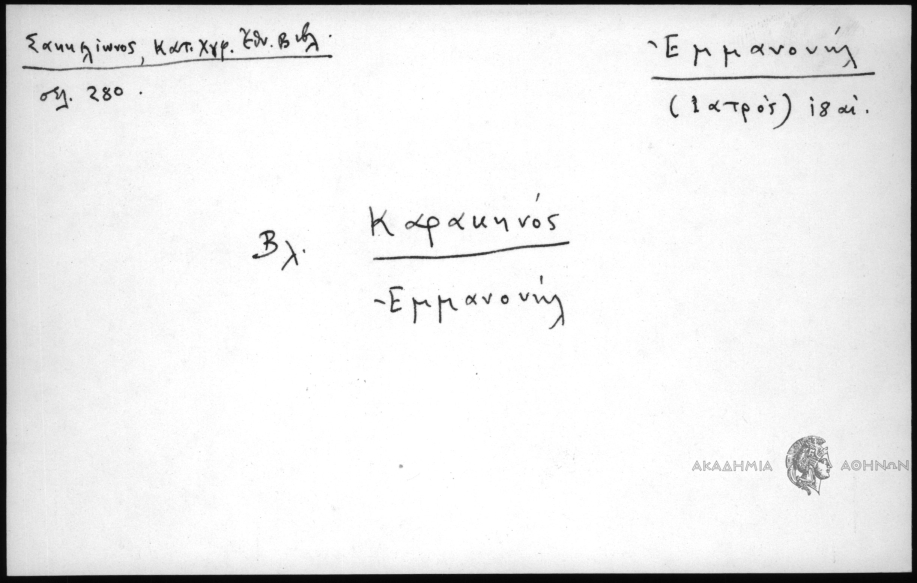 Σακκελίωνος, Κατ. Χγρ. Ἐθν. Βιβλ.
σελ. 280.
Ἐμμανουήλ
(ἰατρός) 18 αἰ.
Βλ. Καρακηνός
Ἐμμανουήλ
ΑΚΑΔΗΜΙΑ ΑΘΗΝΩΝ